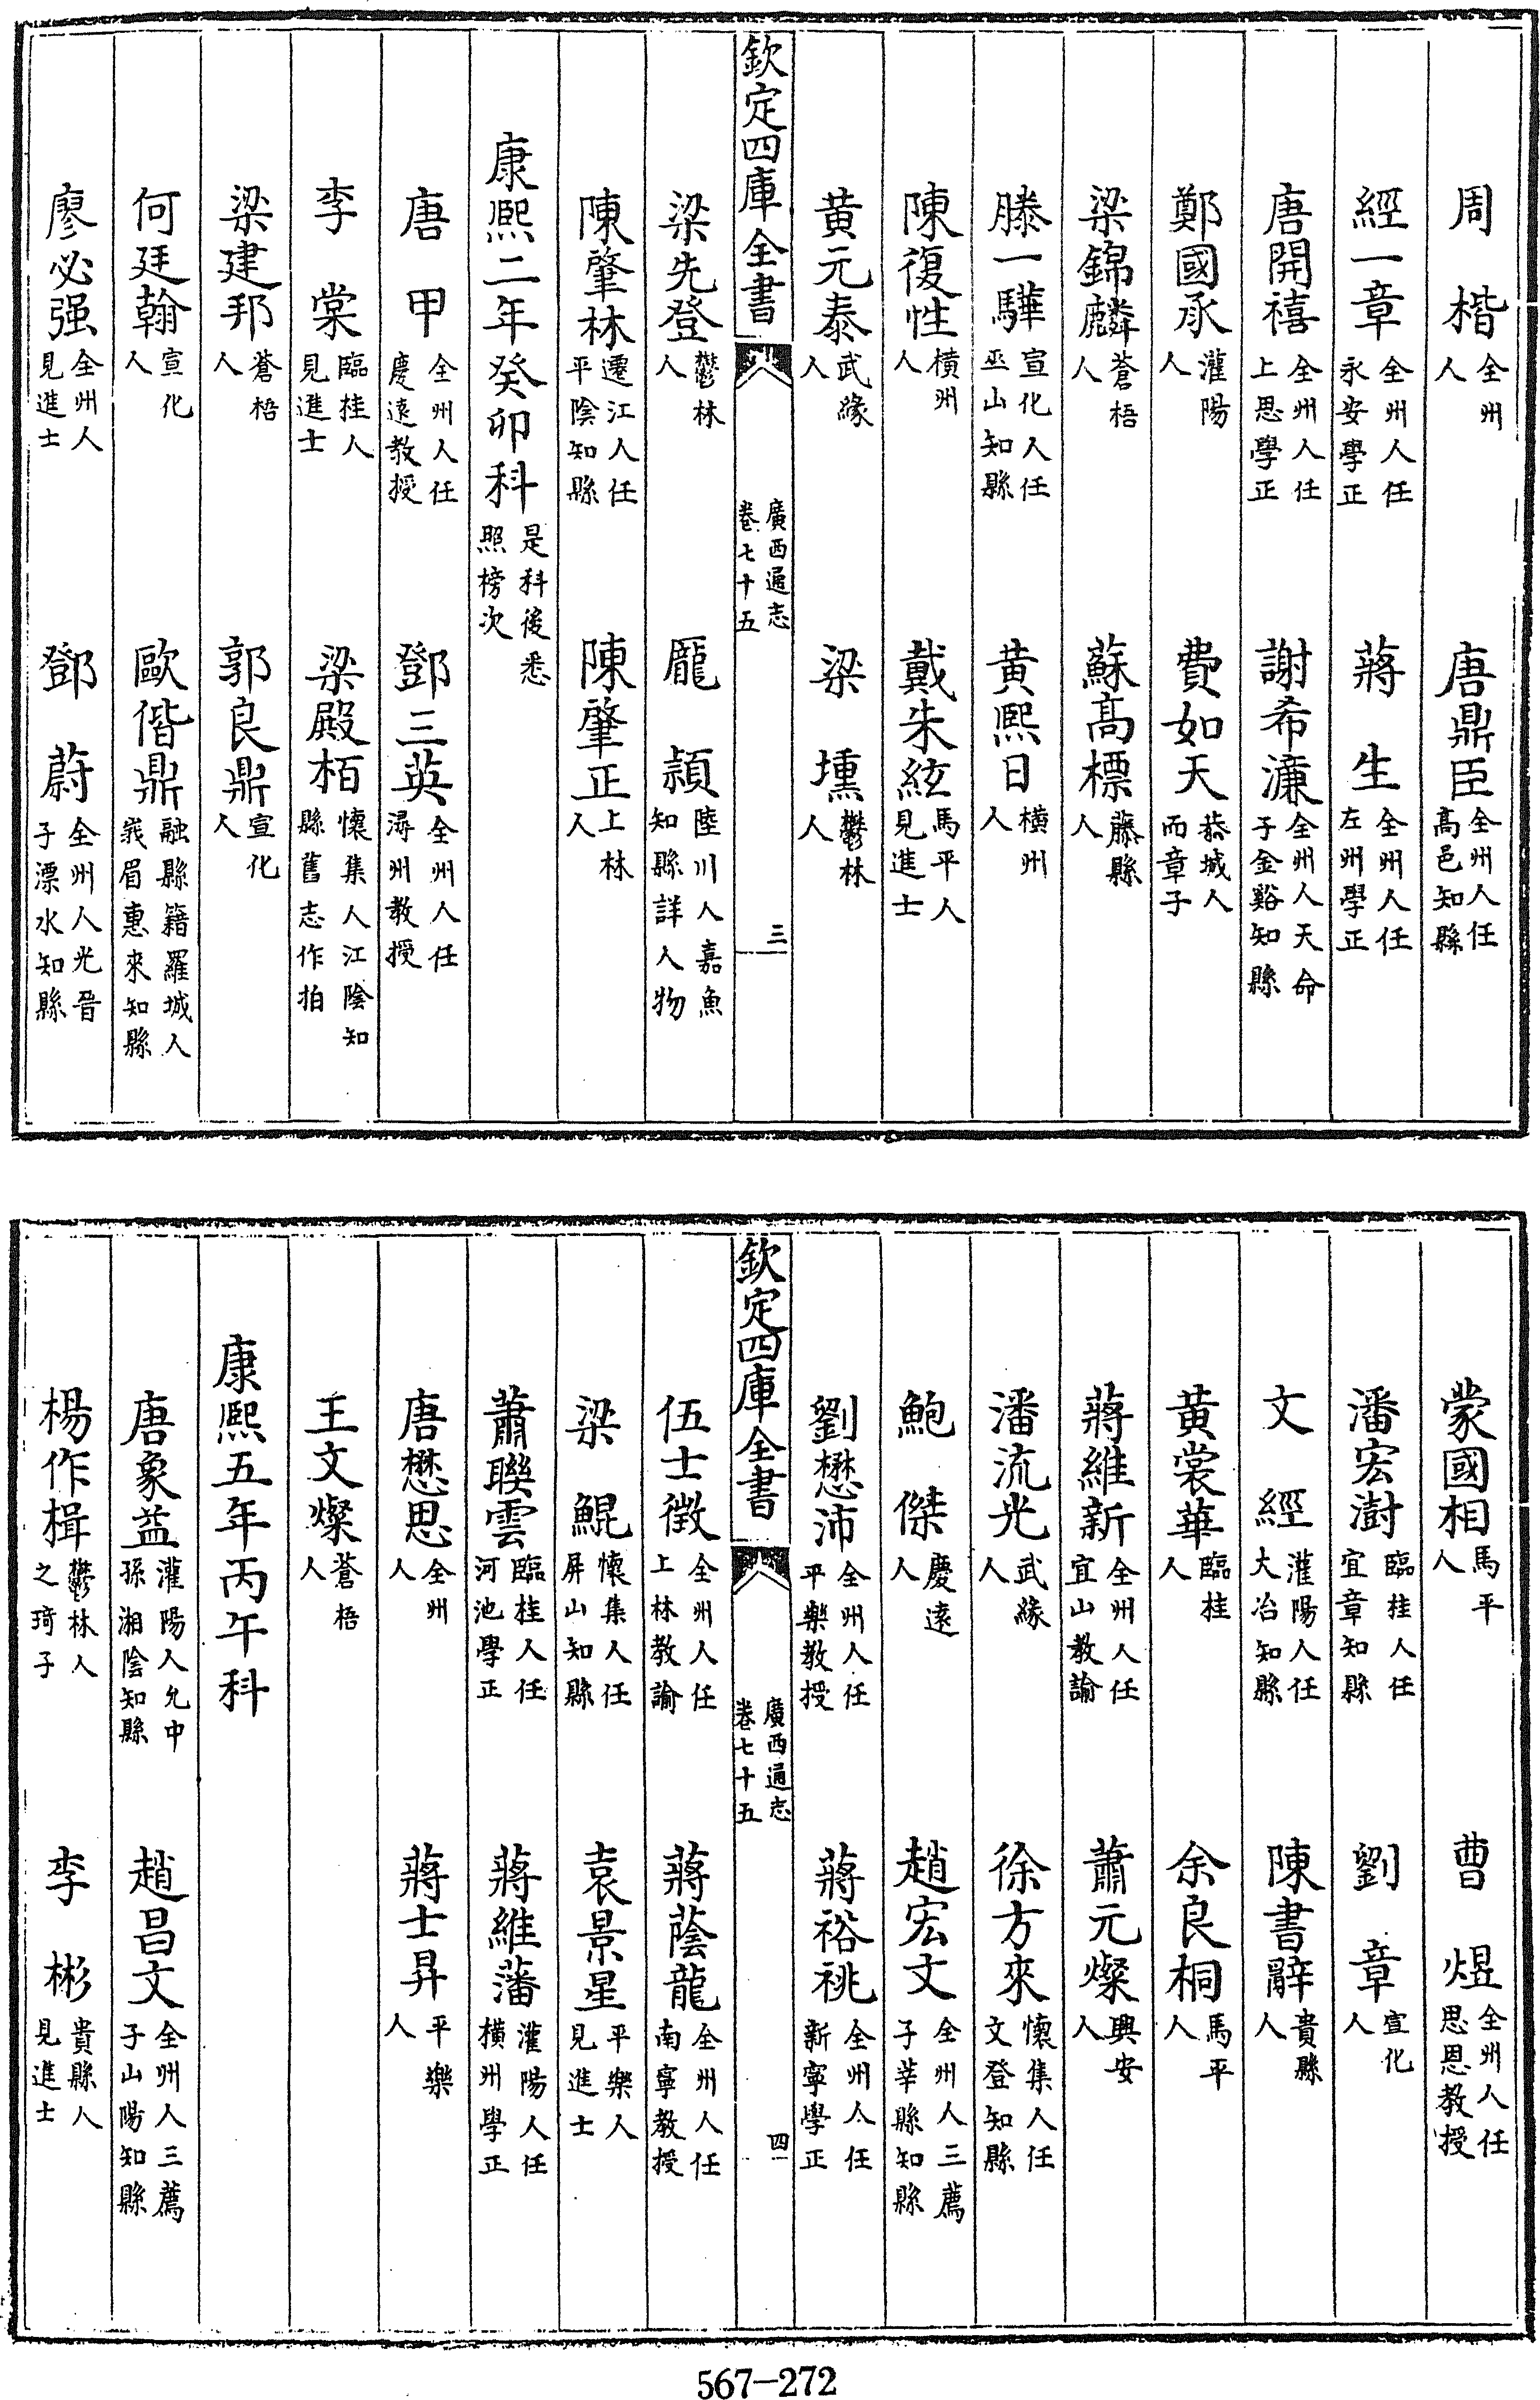 周楷全州人　唐鼎臣全州人任高邑知縣
經一章全州人任永安學正　蔣生全州人任左州學正
唐開禧全州人任上思學正　謝希濂全州人天命子金谿知縣
鄭國承灌陽人　費如天恭城人而章子
梁錦麟蒼梧人　蘇高標藤縣人
滕一驊宣化人任巫山知縣　黃熙日橫州人
陳復性橫州人　戴朱絃馬平人見進士
黃元泰武緣人　梁壎鬱林人
欽定四庫全書　廣西通志卷七十五　三
梁先登鬱林人　龎頴陸川人嘉魚知縣詳人物
陳肇林遷江人任平陰知縣　陳肇正上林人
康熙二年癸卯科是科後悉照榜次
唐甲全州人任慶遠教授　鄧三英全州人任潯州教授
李棠臨桂人見進士　梁殿栢懷集人江陰知縣舊志作拍
梁建邦蒼梧人　郭良鼎宣化人
何廷翰宣化人　歐偕鼎融縣籍羅城人峩眉惠來知縣
廖必强全州人見進士　鄧蔚全州人光晉子漂水知縣
蒙國相馬平人　曹煜全州人任思恩教授
潘宏澍臨桂人任宜章知縣　劉章宣化人
文經灌陽人任大冶知縣　陳書辭貴縣人
黃裳華臨桂人　余良桐馬平人
蔣維新全州人任宜山教諭　蕭元燦興安人
潘流光武緣人　徐方來懷集人任文登知縣
鮑傑慶遠人　趙宏文全州人三薦子莘縣知縣
劉懋沛全州人任平樂教授　蔣裕祧全州人任新寧學正
欽定四庫全書　廣西通志卷七十五　四
伍士徵全州人任上林教諭　蔣蔭龍全州人任南寧教授
梁鯤懷集人任屏山知縣　袁景星平樂人見進士
蕭聯雲臨桂人任河池學正　蔣維藩灌陽人任橫州學正
唐懋思全州人　蔣士昇平樂人
王文燦蒼梧人
康熙五年丙午科
唐象益灌陽人允中孫湘陰知縣　趙昌文全州人三薦子山陽知縣
楊作楫鬱林人之琦子　李彬貴縣人見進士
567-272